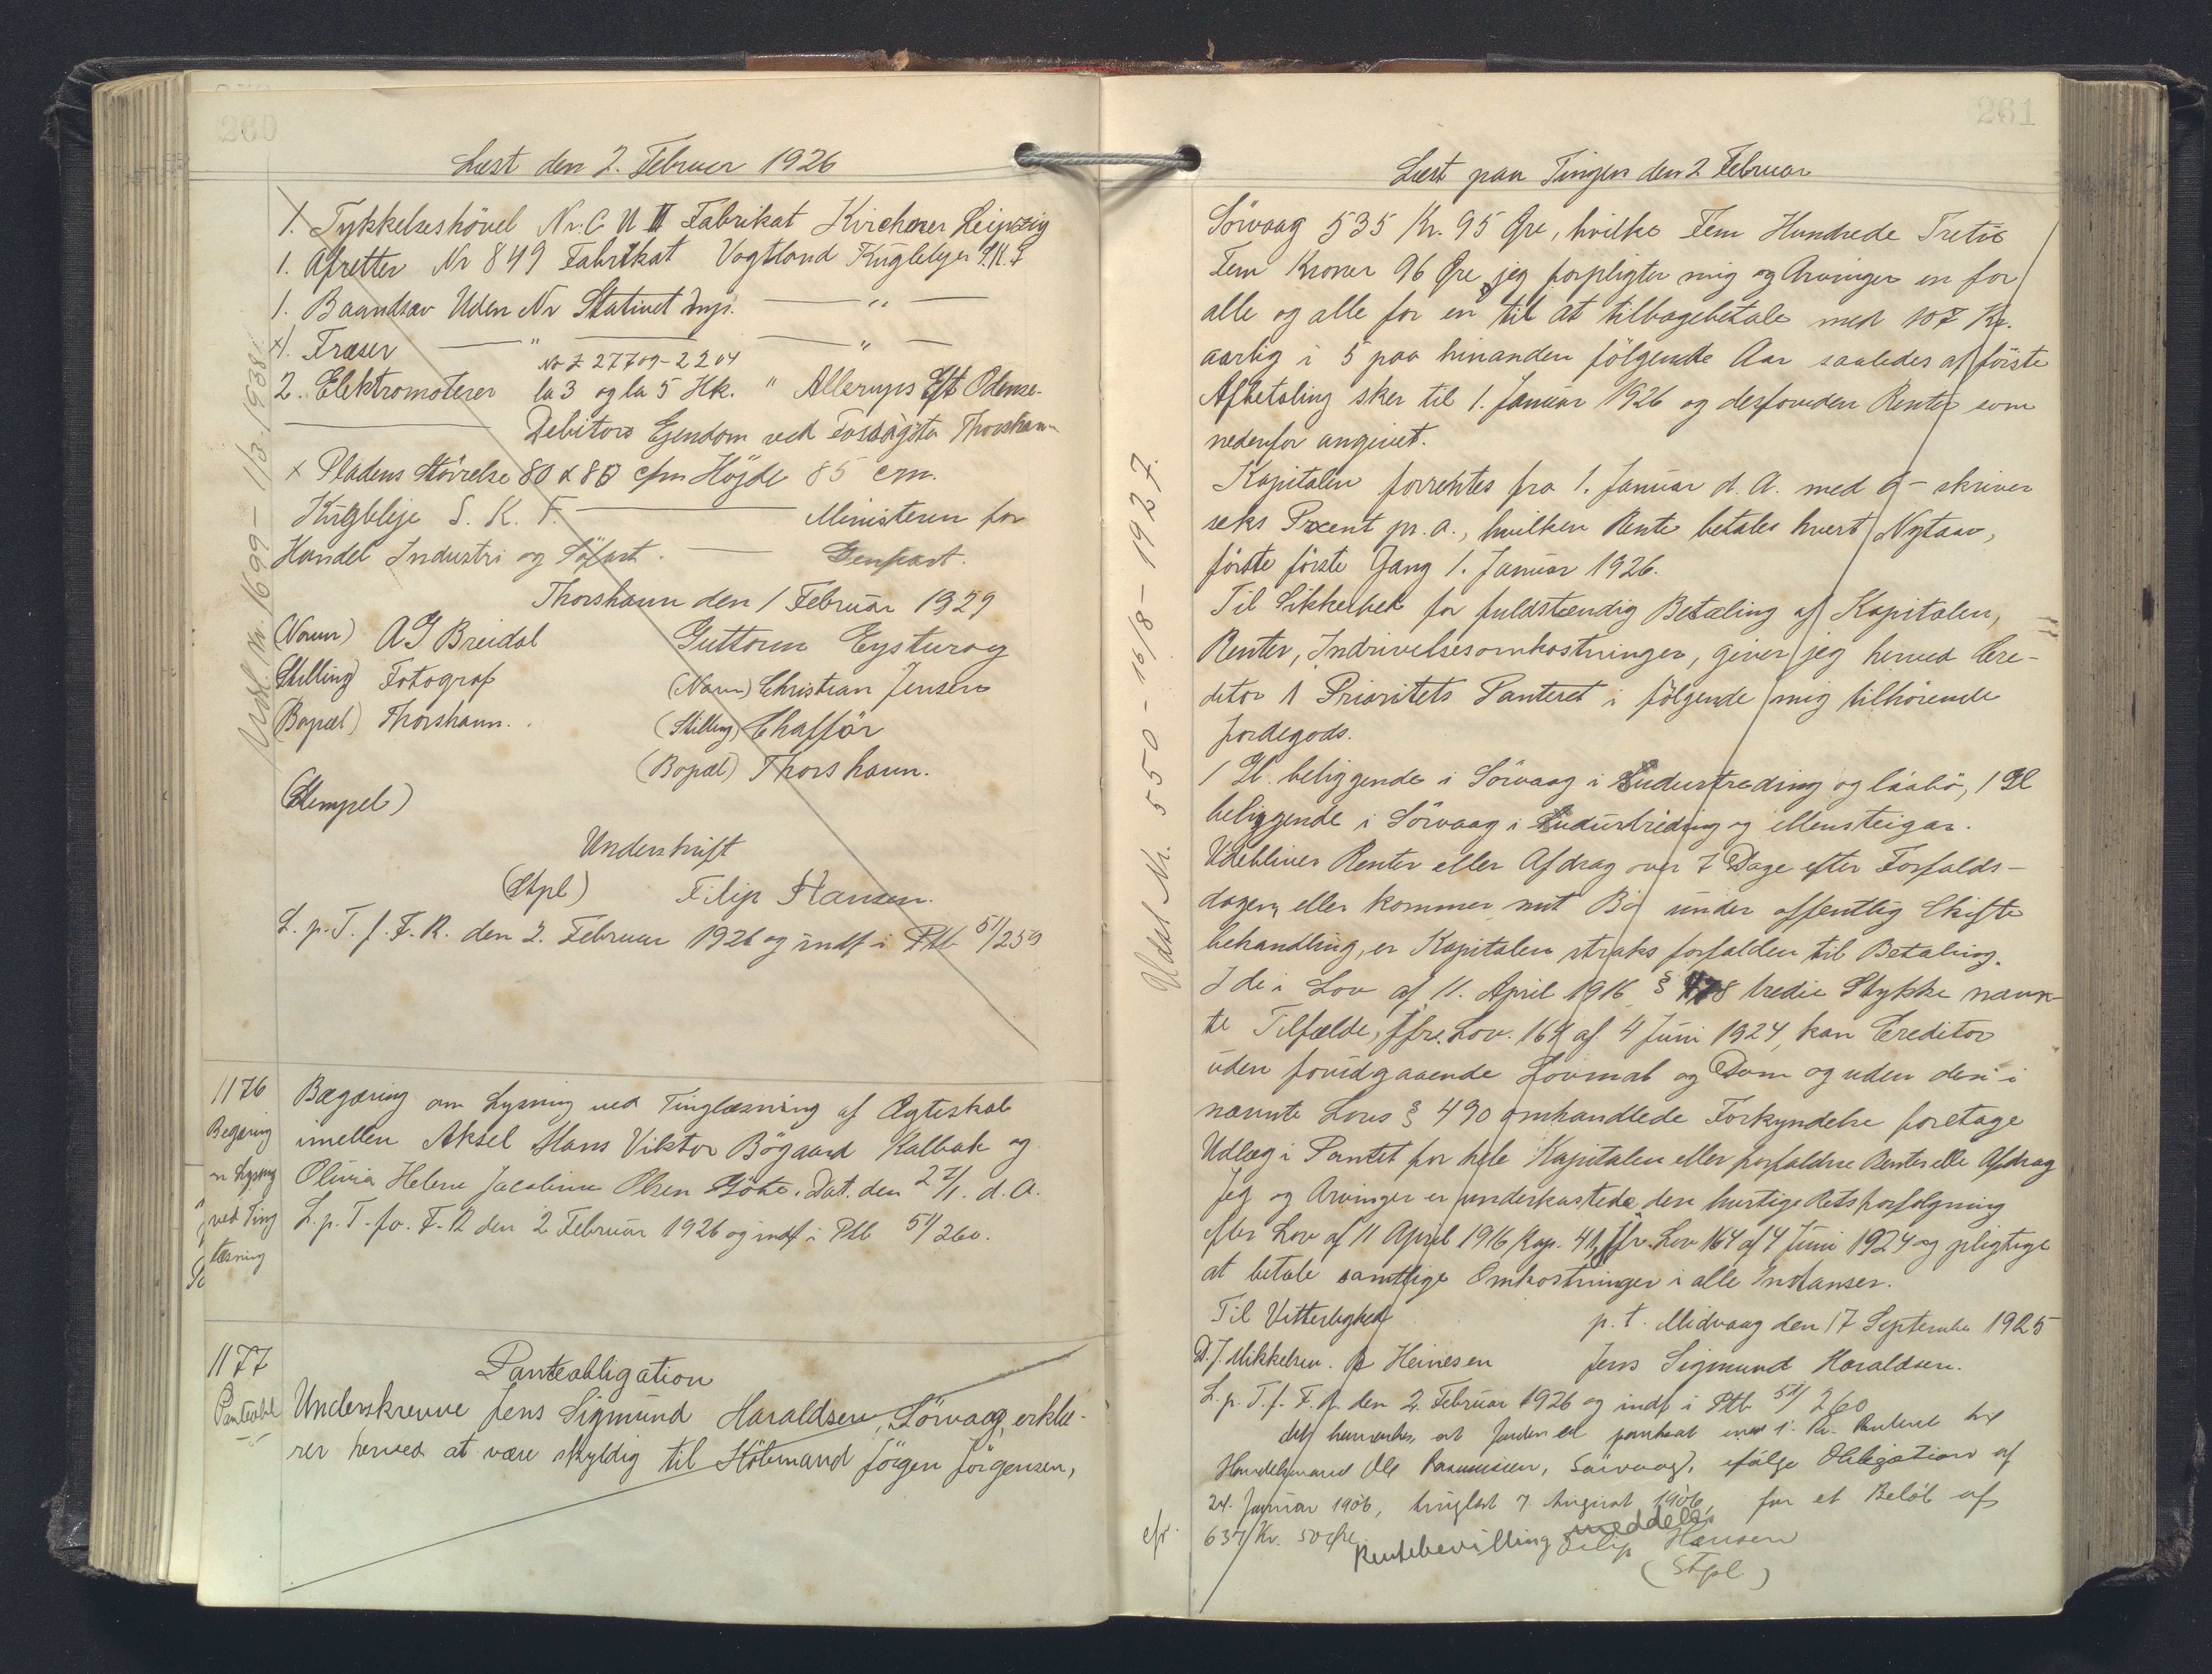 260
Læst den 2. Februar 1926
1. Tykkelseshövel Nr. C U III Fabrikat Kirchener Leipzig
1. Afretter Nr 849 Fabrikat Vogtland Kuglelejer S.K.F
1. Baandsav Uden Nr Stativet — " —
+1. Fræser — " — — " —
No F 27709-2204
2. Elektromoterer la 3 og la 5 Hk. " Allerups Eft Odense.
Debitors Ejendom ved Thorshavn
x Pladens Störrelse 80 x 80 cm Höjde 85 cm.
Kugleleje S. K. F. — Ministeren for
Handel Industri og Söfart. — Genpart.
Thorshavn den 1 Februar 1929
(Navn) AG Breidal Guttorm Eysturoy
(Stilling) Fotograf (Navn) Christian Jensen
(Bopæl) Thorshavn. (Stilling) Chafför
(Bopæl) Thorshavn.
(Stempel)
Underskrift
(Stpl) Filip Hansen.
L. p. T. f. F. R. den 2. Februar 1926 og indf i Ptb 51/259
Udsl. Nr. 1699 - 1/3 1938
1176
Begæring
om Lysning
ved Ting
læsning
Begæring om Lysning ved Tinglæsning af Ægteskab
imellem Aksel Hans Viktor Bögaard Kalbak og
Olivia Helene Jacobine Olsen Göte. Dat. den 27/1. d. A.
L. p. T. fo. F. R den 2 Februar 1926 og indf i Ptb 51/260.
1177
Panteobl
Panteobligation
Underskrevne Jens Sigmund Haraldsen, Sörvaag, erklæ-
rer herved at være skyldig til Köbmand Jörgen Jörgensen,
261
Læst paa Tingen den 2 Februar
Sörvaag 535 Kr. 95 Øre, hvilke Fem Hundrede Tretie
Fem Kroner 96 Øre jeg forpligter mig og Arvinger en for
alle og alle for en til at tilbagebetale med 107 Kr.
aarlig i 5 paa hinanden fölgende Aar saaledes at förste
Afbetaling sker til 1. Januar 1926 og desforuden Renter som
nedenfor angivet.
Kapitalen forrentes fra 1. Januar d. A. med 6 - skriver
seks Procent pr. a., hvilken Rente betales hvert Nytaar,
förste förste Gang 1. Januar 1926.
Til Sikkerhed for fuldstændig Betaling af Kapitalen,
Renter, Indrivelsesomkostninger, giver jeg herved Cre-
ditor 1 Prioritets Panteret i fölgende mig tilhörende
jordegods.
1 Gl. beliggende i Sörvaag i Sudurtrading og láabö, 1 Gl
beliggende i Sörvaag i Sudurtrøding og ellensteigar.
Udebliver Renter eller Afdrag over 7 Dage efter Forfalds-
dagen, eller kommer mit Bo under offentlig Skifte
behandling, er Kapitalen straks forfalden til Betaling.
I de i Lov af 11. April 1916 § 478 tredie Stykke nævn-
te Tilfælde, jfr. Lov. 164 af 4 Juni 1924, kan Creditor
uden forudgaaende Lovmaal og Dom og uden den i
nævnte Lovs § 490 omhandlede Forkyndelse foretage
Udlæg i Pantet for hele Kapitalen eller forfaldne Renter elle Afdrag
Jeg og Arvinger er underkastede den hurtige Retsforfölgning
efter Lov af 11 April 1916 Kap. 41, jfr. Lov 164 af 4 Juni 1924 og pligtige
at betale samtlige Omkostninger i alle Instanser.
Til Vitterlighed p. t. Midvaag den 17 September 1925
D. J. Mikkelsen. P Heinesen Jens Sigmund Haraldsen.
L. p. T. f. F. R. den 2. Februar 1926 og indf i Ptb 51/260
det bemærkes, at Jorden er pantsat med 1. Pr. Panteret til
Handelsmand Ole Rasmussen, Sörvaag, ifölge Obligation af
24. Januar 1906, tinglæst 7. August 1906, for et Belöb af
cfr. 637 Kr. 50 Øre
Rentebevilling meddeles
Filip Hansen
(Stpl.)
Udsl. Nr. 550 - 16/8 - 1927.